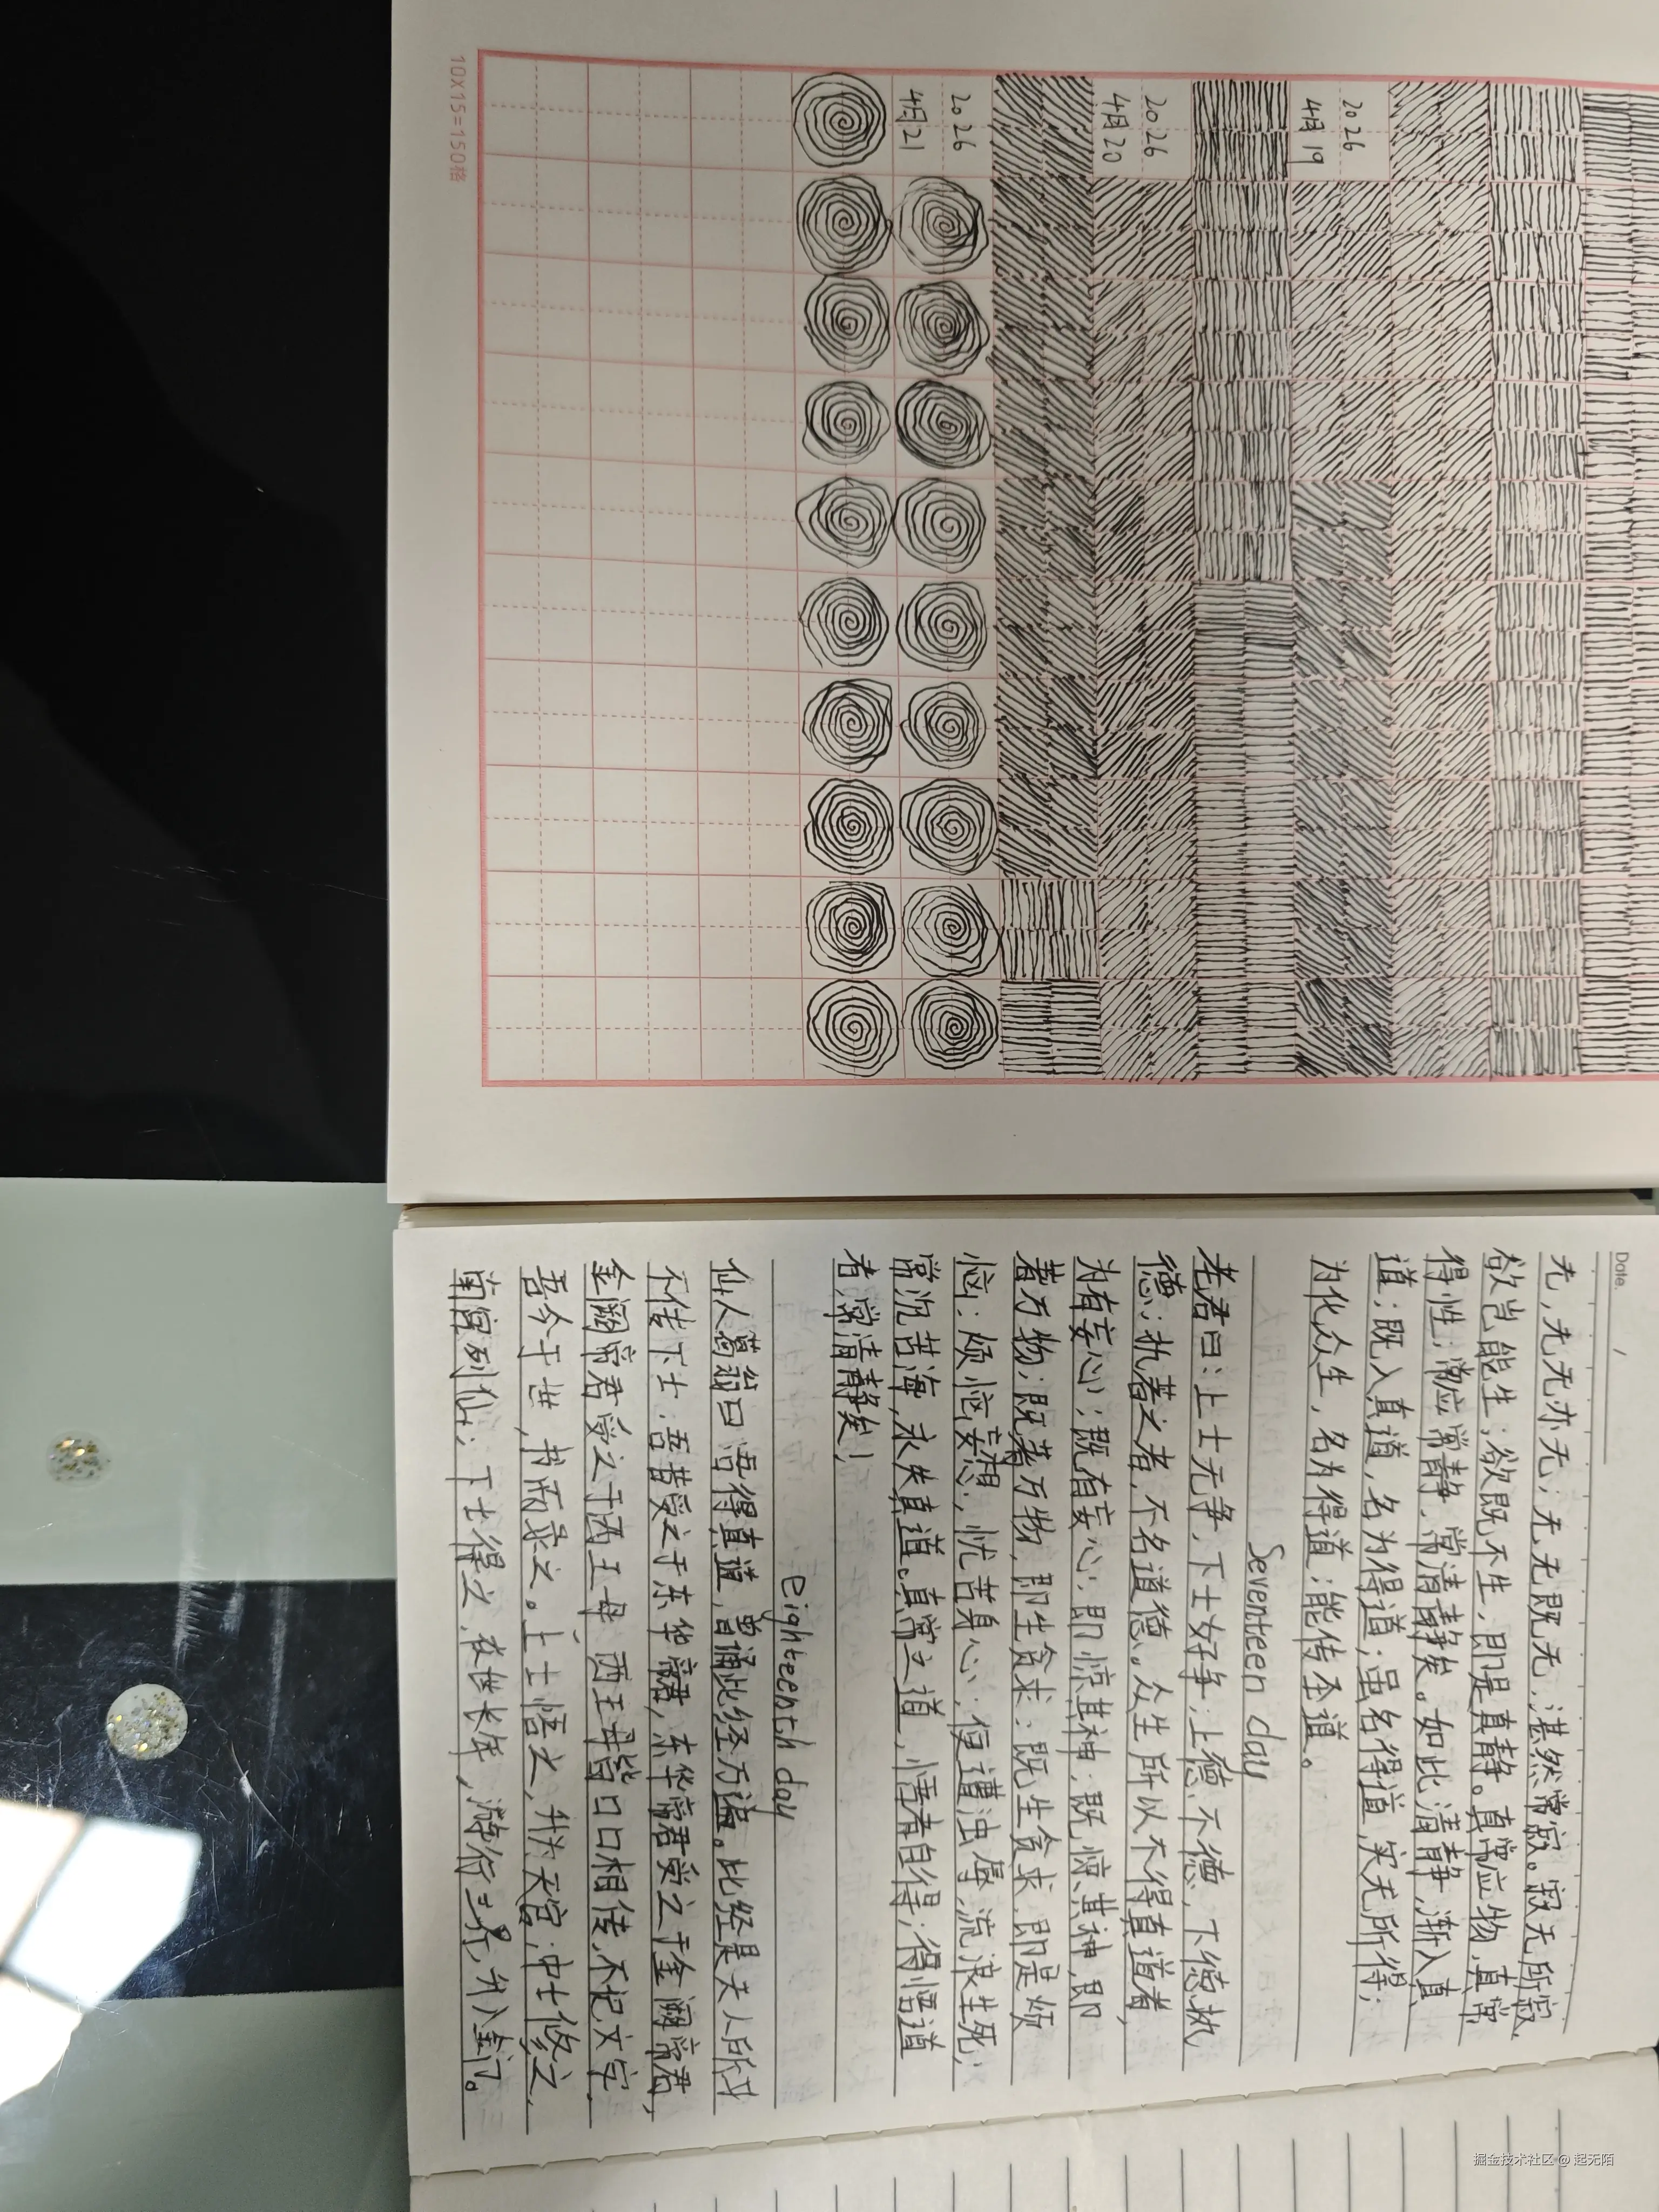 2026
4月19
2026
4月20
2026
4月21
10×15=150格
Date. /
无,无无亦无;无无既无,湛然常寂。寂无所寂,
欲岂能生;欲既不生,即是真静。真常应物,真常
得性;常应常静,常清静矣。如此清静,渐入真
道;既入真道,名为得道;虽名得道,实无所得;
为化众生,名为得道;能传圣道。
Seventeen day
老君曰:上士无争,下士好争;上德不德,下德执
德;执著之者,不名道德。众生所以不得真道者,
为有妄心;既有妄心;即惊其神;既惊其神,即
著万物;既著万物,即生贪求;既生贪求,即是烦
恼;烦恼妄想;忧苦身心;便遭浊辱,流浪生死;
常沉苦海,永失真道。真常之道,悟者自得;得悟道
者,常清静矣!
eighteenth day
仙人葛翁曰:吾得真道,曾诵此经万遍。此经是天人所习
不传下士。吾昔受之于东华帝君,东华帝君受之于金阙帝君,
金阙帝君受之于西王母、西王母皆口口相传,不记文字.
吾今于世,书而录之。上士悟之,升为天官;中士修之,
南宫列仙;下士得之,在世长年,游行三界,升入金门。
掘金技术社区 @ 起无陌